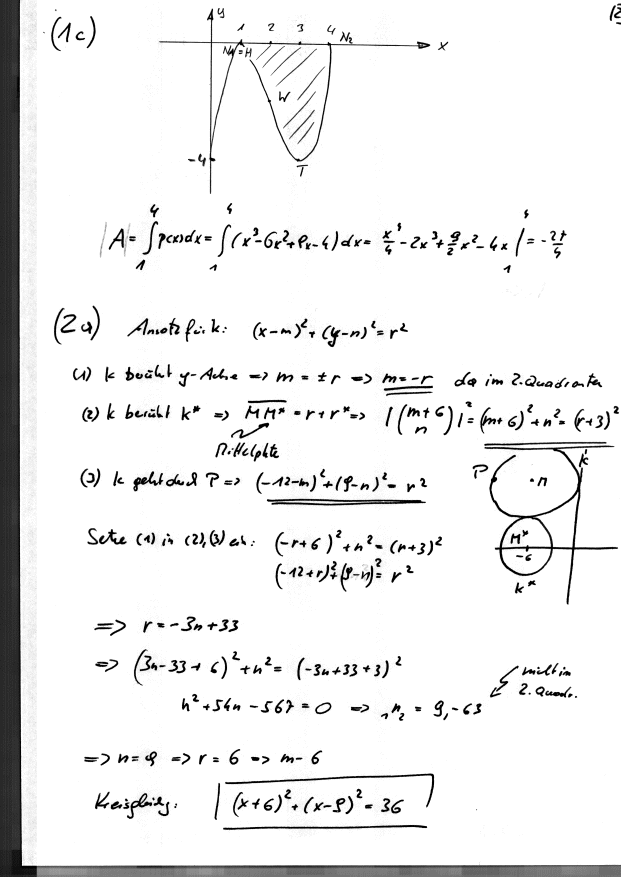 12
(1c)
y
1 2 3 4 N₂
x
N₁=H
W
-4
T
|A| = ∫₁⁴ p(x)dx = ∫₁⁴ (x³-6x²+9x-4)dx = x⁴/4 - 2x³ + 9/2 x² - 4x |₁⁴ = -27/4
(2a) Ansatz für k: (x-m)²+(y-n)²=r²
(1) k berührt y-Achse => m = ±r => m=-r da im 2.Quadranten
(2) k berührt k* => MM* = r+r* => |(m+6 n)|² = (m+6)²+n² = (r+3)²
Mittelpkte
(3) k geht durch P => (-12-m)²+(9-n)² = r²
k
P
n
M*
-6
k*
Setze (1) in (2),(3) ein: (-r+6)²+n² = (r+3)²
(-12+r)²+(9-n)² = r²
=> r=-3n+33
=> (3n-33+6)²+n² = (-3n+33+3)²
nicht in
2.Quadr.
n²+54n-567=0 => ₁n₂ = 9,-63
=> n=9 => r=6 => m-6
Kreisgleichg: (x+6)²+(x-9)² = 36